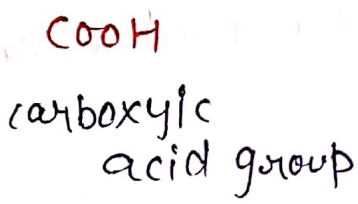 COOH
carboxylic
acid group